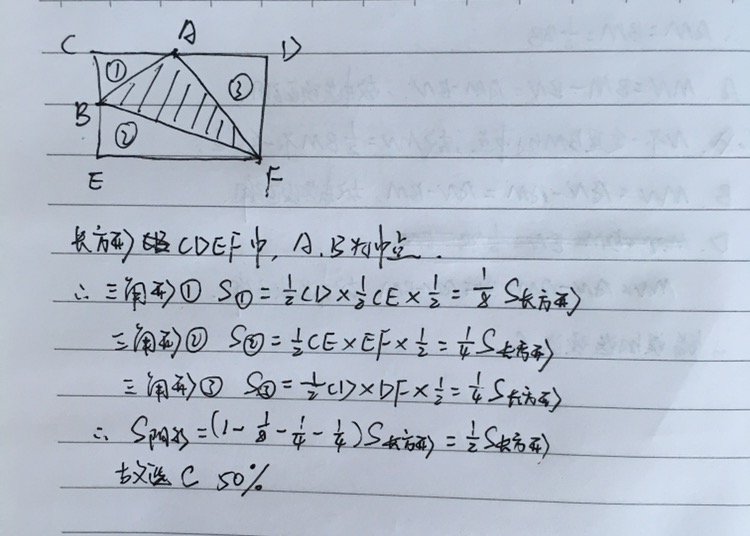 C A D
① ③
B ②
E F
长方形 CDEF中, A、B为中点.
∴ 三角形① S① = 1/2 CD × 1/2 CE × 1/2 = 1/8 S长方形
三角形② S② = 1/2 CE × EF × 1/2 = 1/4 S长方形
三角形③ S③ = 1/2 CD × DF × 1/2 = 1/4 S长方形
∴ S阴影 = (1 - 1/8 - 1/4 - 1/4) S长方形 = 1/2 S长方形
故选 C 50%